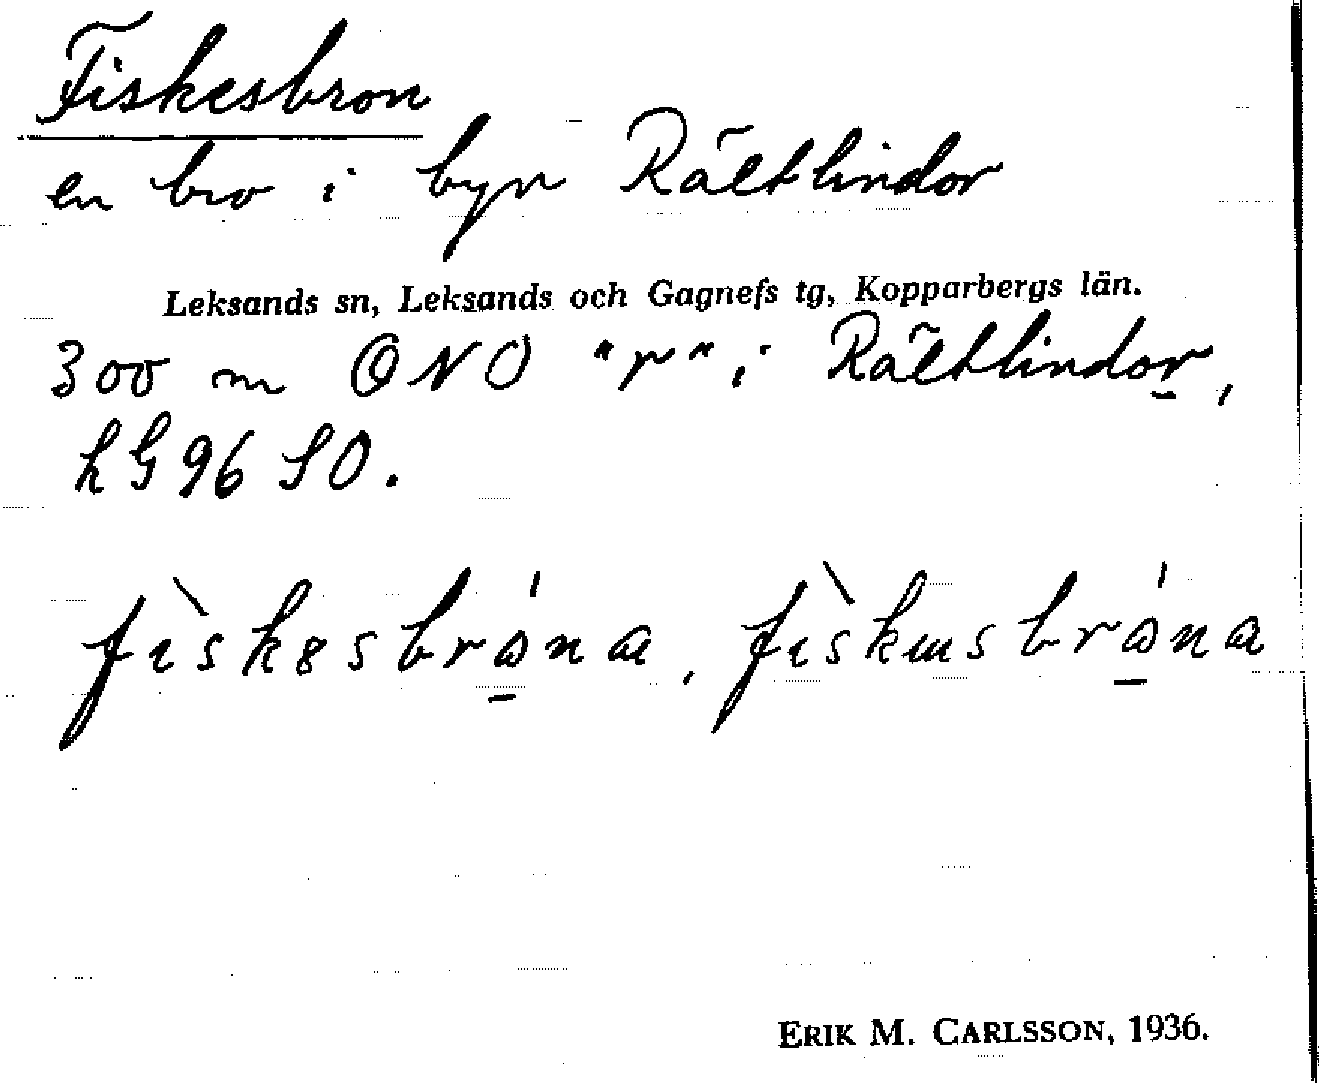 Fiskesbron
en bro i byn Rältlindor
Leksands sn, Leksands och Gagnefs tg, Kopparbergs län.
300 m ONO "r" i Rältlindor,
hG96 SO.
fìskəsbrǫ́na, fìskɯsbrǫ́na
ERIK M. CARLSSON, 1936.